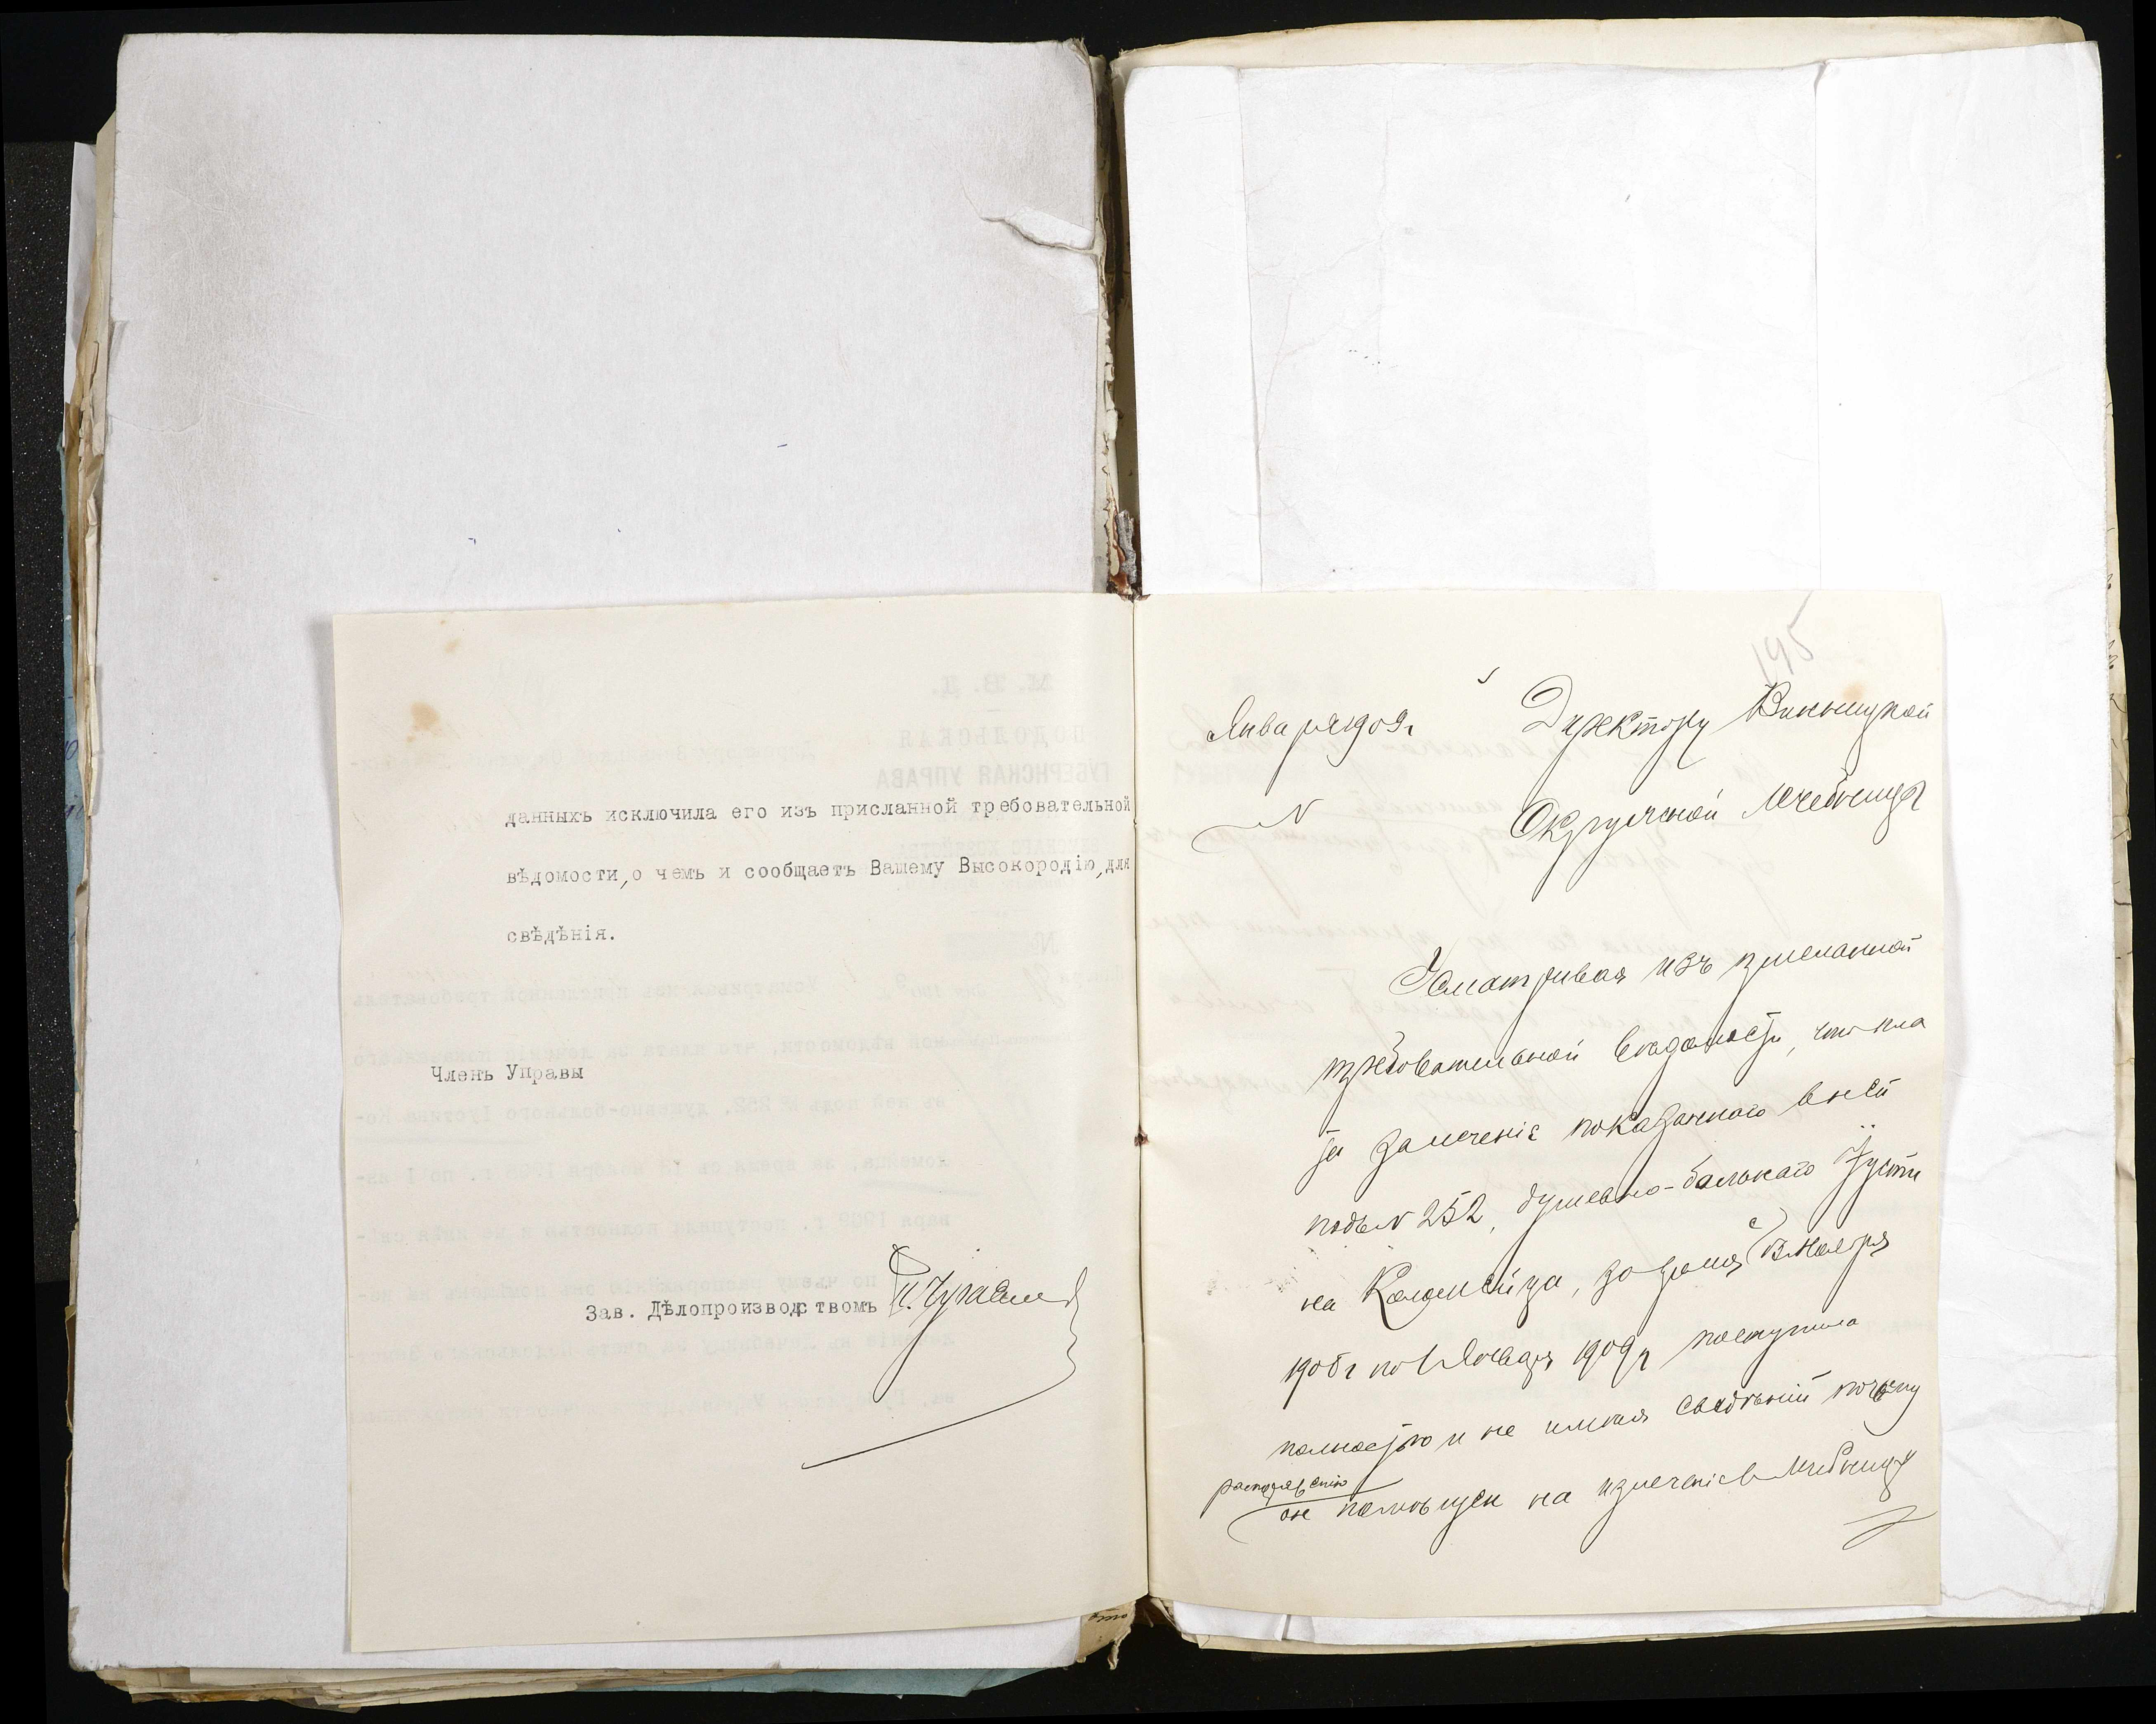 данныхъ исключила его изъ присланной требовательной
вѣдомости, о чемъ и сообщаетъ Вашему Высокородію, для
свѣдѣнія.
Членъ Управы
Зав. Дѣлопроизводствомъ
195
Января 1909 г
Директору Винницкой
N
Окружной Лечебницы
Усматривая изъ присланной
требовательной вѣдомости, что пла
та за леченіе показаннаго въ ней
подъ N 252, душевно-больнаго Іусти
на Коломейца, за время с 13 Ноября
1908 г по 1 Января 1909 г поступила
полностью и не имѣя свѣдѣній по чьему
распоряженію
он помѣщен на излеченіе в Лечебницу